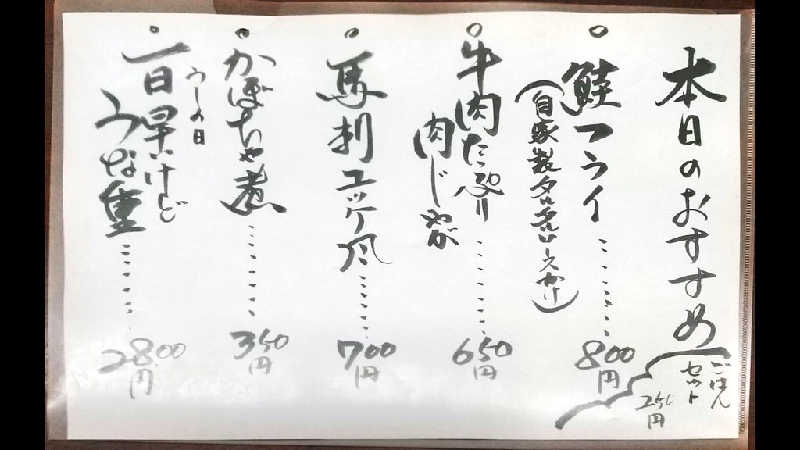 本日のおすすめ
ごはん
セット
250円
鮭フライ
(自家製タルタルソースかけ)
800円
牛肉たっぷり
肉じゃが
650円
馬刺ユッケ風
700円
かぼちゃ煮
350円
うしの日
一日早いけど
うな重
2800円